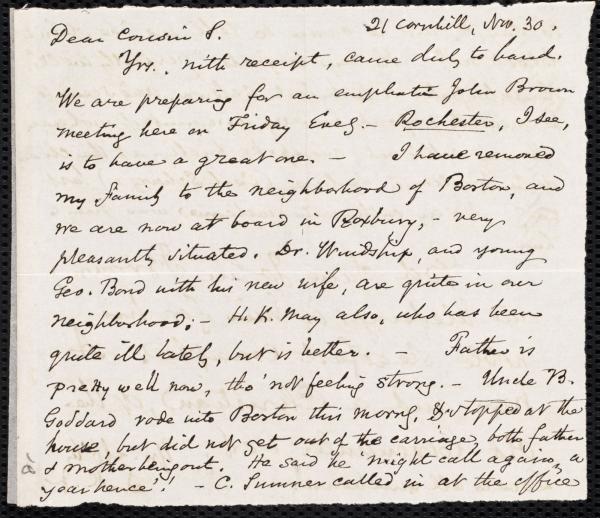 21 Cornhill, Nov. 30.
Dear Cousin S.
Yrs., with receipt, came duly to hand.
We are preparing for an emphatic John Brown
meeting here on Friday Eveg. - Rochester, I see,
is to have a great one. - I have removed
my family to the neighborhood of Boston, and
we are now at board in Roxbury, - very
pleasantly situated. Dr. Windship, and young
Geo. Bond with his new wife, are quite in our
neighborhood; - H. K. May also, who has been
quite ill lately, but is better. - Father is
pretty well now, tho' not feeling strong. - Uncle B.
Goddard rode into Boston this morng, & stopped at the
house, but did not get out of the carriage, both father
& mother being out. He said he 'might call again, a
year hence'! - C. Sumner called in at the office